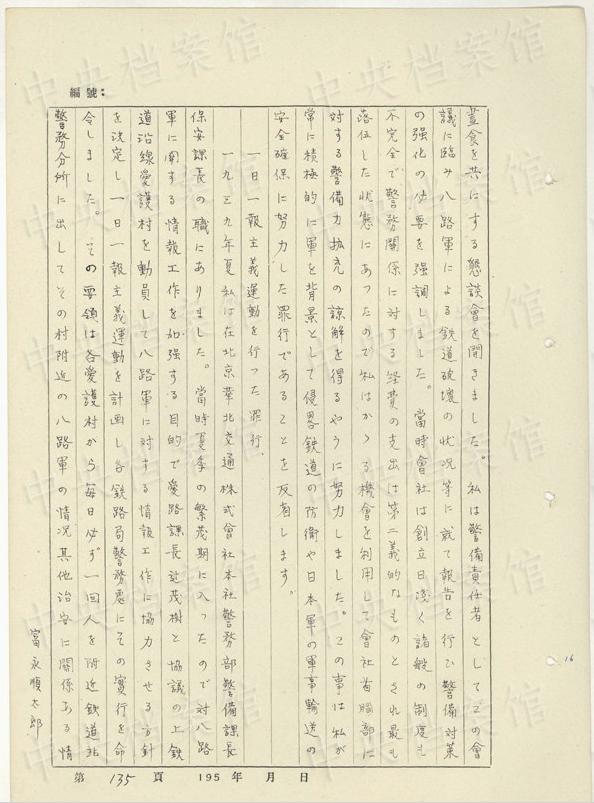 編號：
晝食を共にする懇談會を開きました。私は警備責任者としてこの會
議に臨み八路軍による鉄道破壊の状況等に就て報告を行ひ警備対策
の强化の必要を强調しました。當時會社は創立日浅く諸般の制度も
不完全で警務関係に対する経費の支出は第二義的なものとされ最も
落伍した状態にあったので私はかゝる機會を利用して會社首脳部に
対する警備力拡充の諒解を得るやうに努力しました。この事は私が
常に積極的に軍を背景として侵畧鉄道の防衛や日本軍の軍事輸送の
安全確保に努力した罪行であることを反省します。
一日一報主義運動を行った罪行、
一九三九年夏私は在北京華北交通株式會社本社警務部警備課長
保安課長の職にありました。當時夏季の繁茂期に入ったので対八路
軍に関する情報工作を加强する目的で愛路課長辻茂樹と協議の上鉄
道沿線愛護村を動員して八路軍に対する情報工作に協力させる方針
を決定し一日一報主義運動を計画し各鉄路局警務處にその実行を命
令しました。その要領は各愛護村から毎日必ず一回人を附近鉄道站
警務分所に出してその村附近の八路軍の情况其他治安に関係ある情
富永順太郎
第 135 頁 195 年 月 日
16
中央档案馆